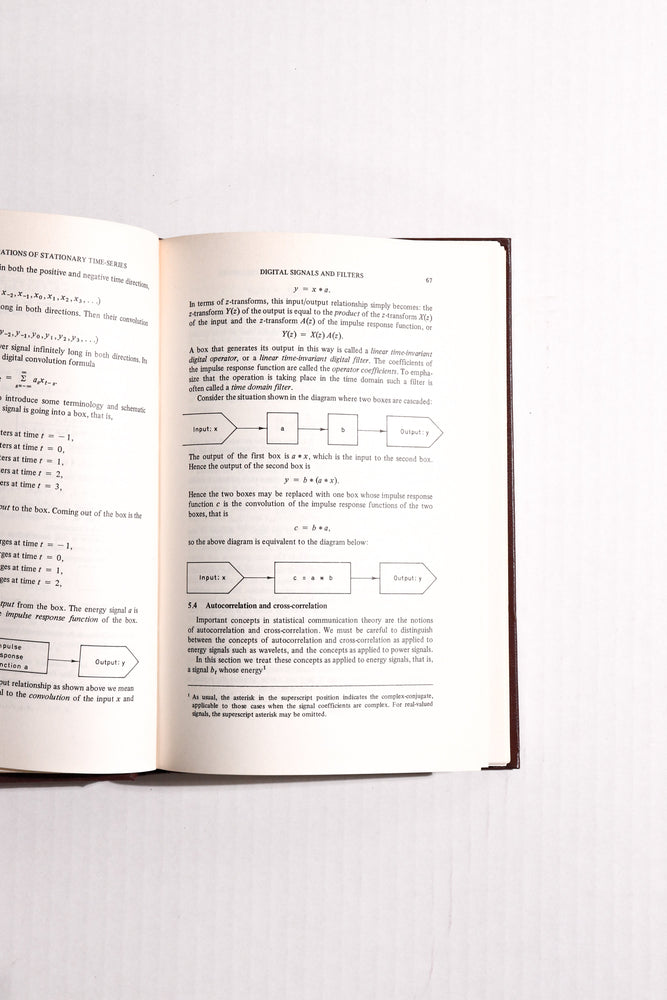 ATIONS OF STATIONARY TIME-SERIES
in both the positive and negative time direction,
x₋₂, x₋₁, x₀, x₁, x₂, x₃, . . .)
ong in both directions. Then their convolution
y₋₂, y₋₁, y₀, y₁, y₂, y₃, . . .)
er signal infinitely long in both directions. Its
digital convolution formula
= Σ aₛxₜ₋ₛ.
introduce some terminology and schematic
signal is going into a box, that is,
ters at time t = − 1,
ters at time t = 0,
ters at time t = 1,
ers at time t = 2,
ers at time t = 3,
put to the box. Coming out of the box is the
rges at time t = − 1,
ges at time t = 0,
ges at time t = 1,
ges at time t = 2,
tput from the box. The energy signal a is
impulse response function of the box.
pulse
sponse
nction a
Output: y
put relationship as shown above we mean
l to the convolution of the input x and
DIGITAL SIGNALS AND FILTERS 67
y = x * a.
In terms of z-transforms, this input/output relationship simply becomes: the
z-transform Y(z) of the output is equal to the product of the z-transform X(z)
of the input and the z-transform A(z) of the impulse response function, or
Y(z) = X(z) A(z).
A box that generates its output in this way is called a linear time-invariant
digital operator, or a linear time-invariant digital filter. The coefficients of
the impulse response function are called the operator coefficients. To empha-
size that the operation is taking place in the time domain such a filter is
often called a time domain filter.
Consider the situation shown in the diagram where two boxes are cascaded:
Input: x a b Output: y
The output of the first box is a * x, which is the input to the second box.
Hence the output of the second box is
y = b * (a * x).
Hence the two boxes may be replaced with one box whose impulse response
function c is the convolution of the impulse response functions of the two
boxes, that is
c = b * a,
so the above diagram is equivalent to the diagram below:
Input: x c = a * b Output: y
5.4 Autocorrelation and cross-correlation
Important concepts in statistical communication theory are the notions
of autocorrelation and cross-correlation. We must be careful to distinguish
between the concepts of autocorrelation and cross-correlation as applied to
energy signals such as wavelets, and the concepts as applied to power signals.
In this section we treat these concepts as applied to energy signals, that is,
a signal bₜ whose energy¹
¹ As usual, the asterisk in the superscript position indicates the complex-conjugate,
applicable to those cases when the signal coefficients are complex. For real-valued
signals, the superscript asterisk may be omitted.